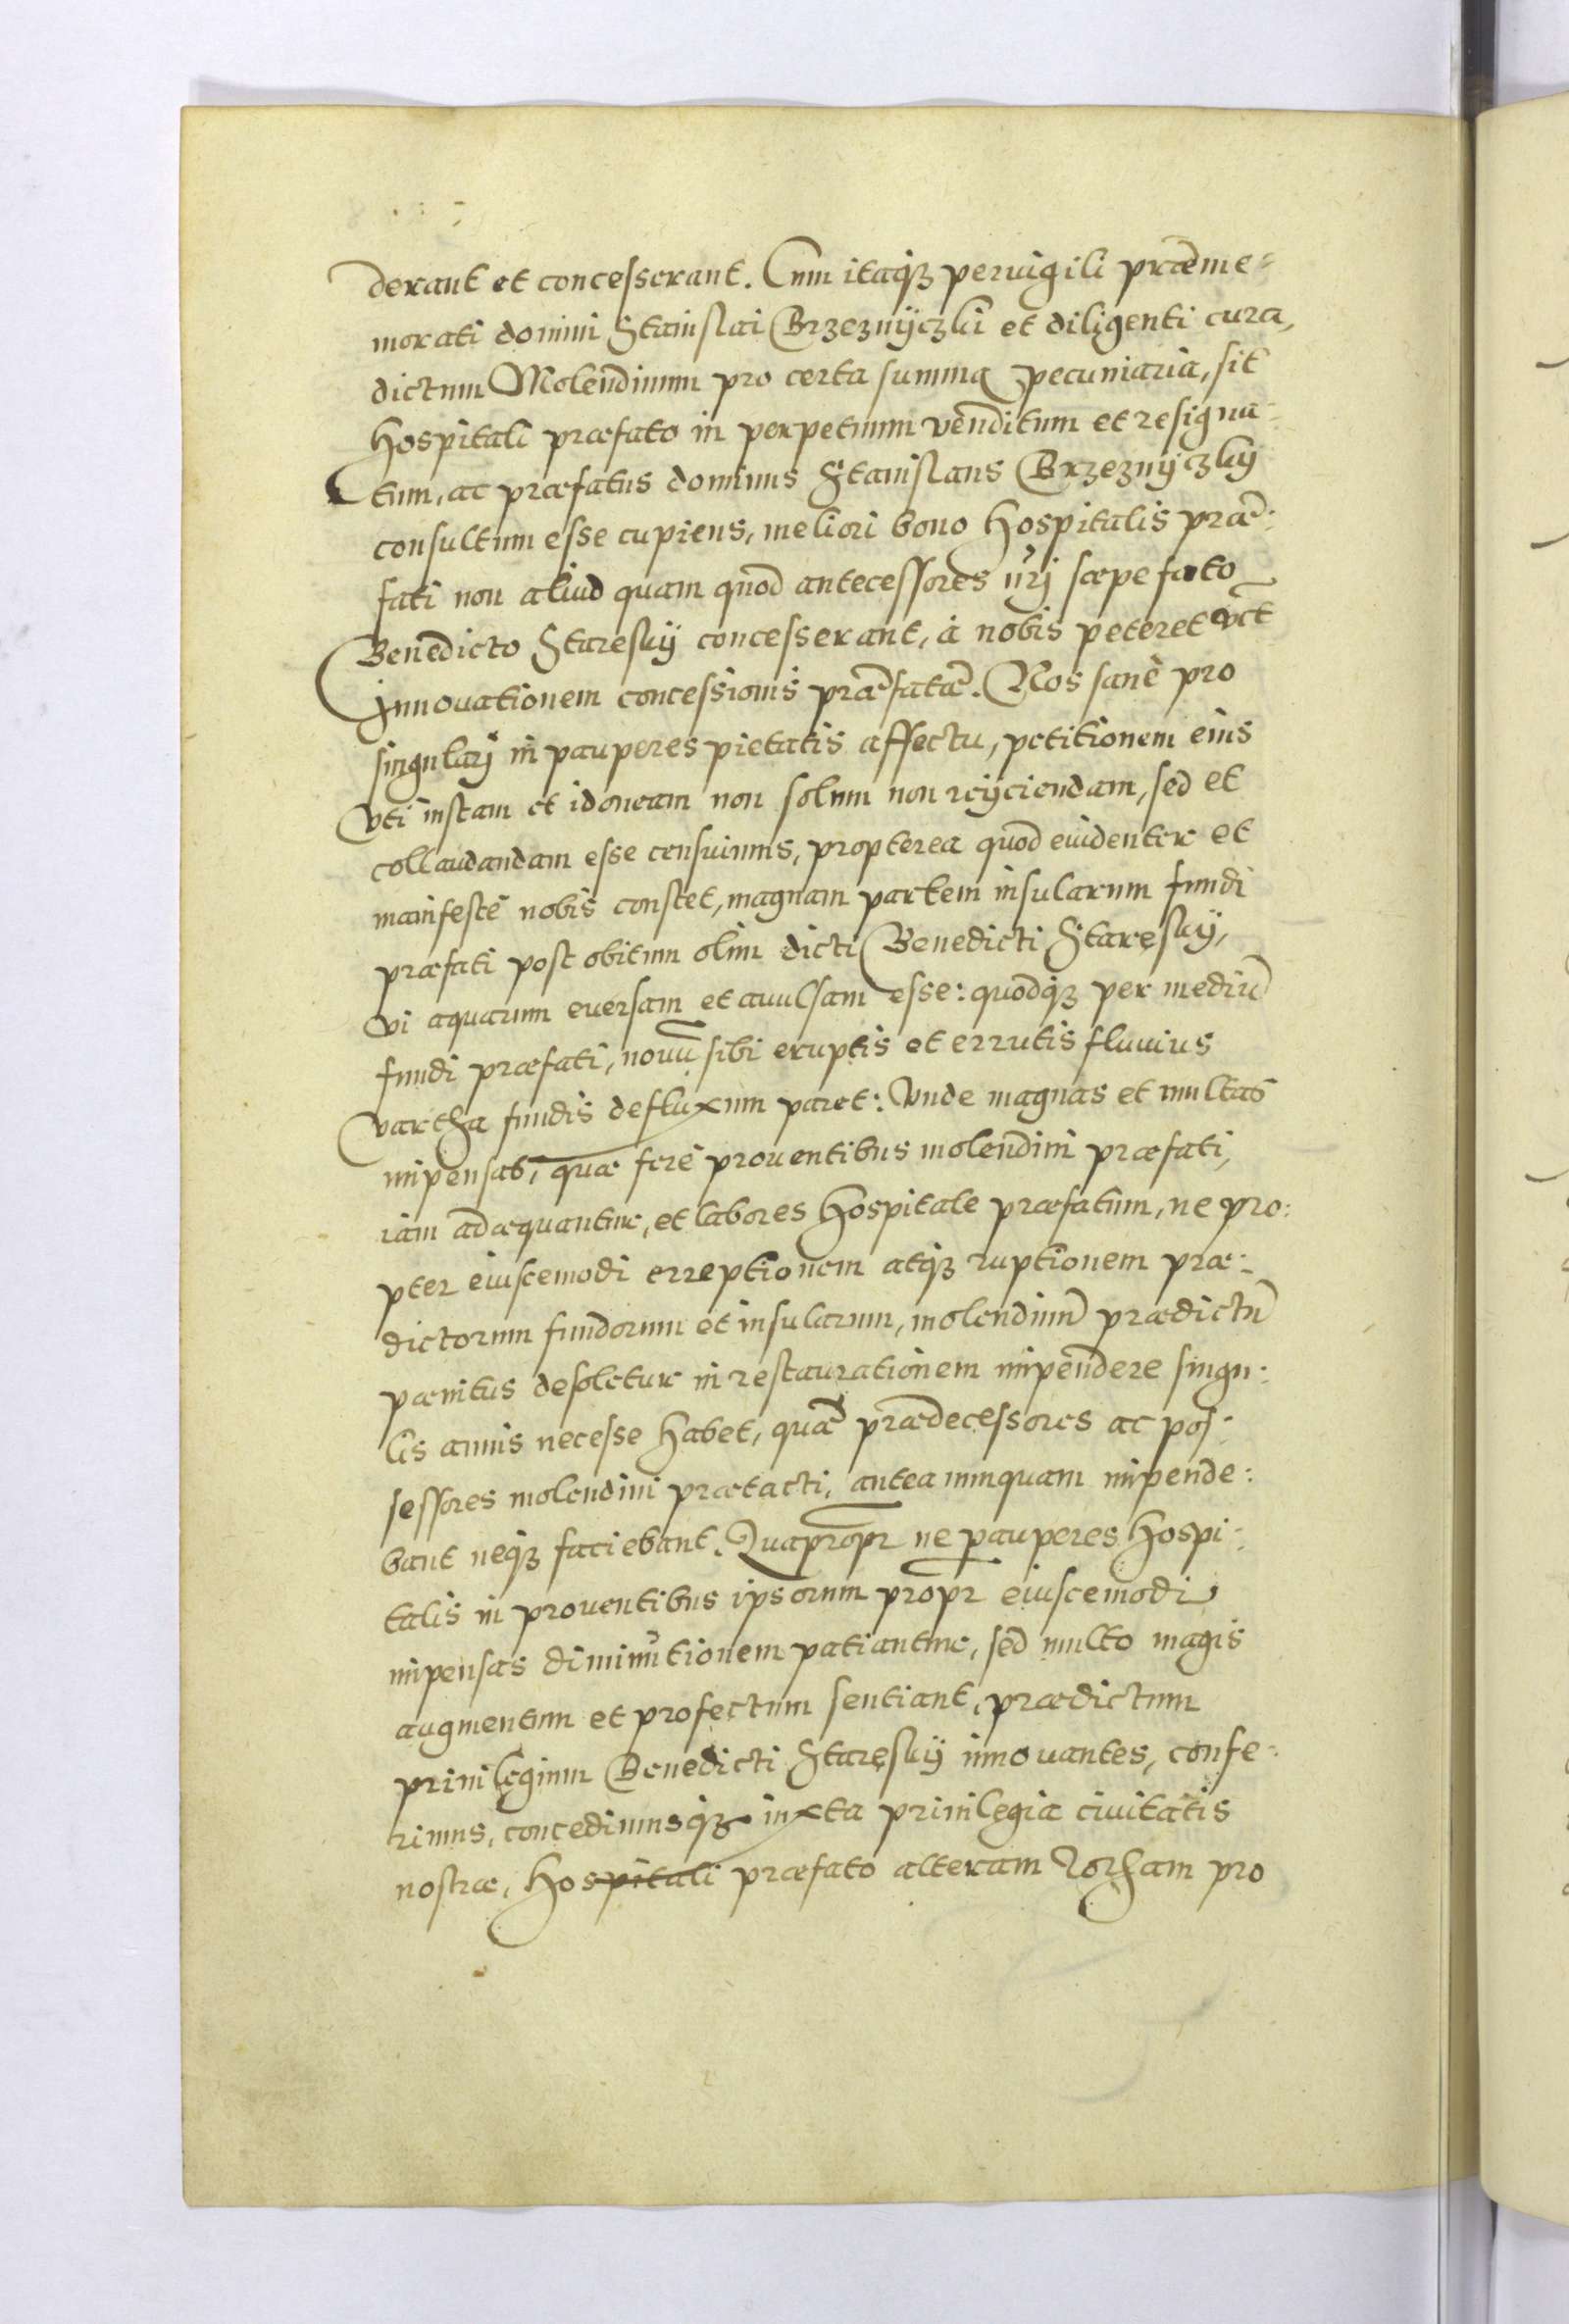 derant et concesserant. Cum itaq₃ peruigili praeme-
morati domini Stanislai Brzeznÿczki et diligenti cura,
dictum Molendinum pro certa summa pecuniaria, sit
Hospitali praefato in perpetuum venditum et resigna-
tum, ac praefatus dominus Stanislaus Brzeznÿczkÿ
consultum esse cupiens, meliori bono Hospitalis prae:
fati non aliud quam quod antecessores nr̃j saepe fato
Benedicto Stareskÿ concesserant, à nobis peteret
Innovationem concessionis praefatae. Nos sanè pro
singularj in pauperes pietatis affectu, petitionem eius
vti iustam et idoneam non solum non reÿciendam, sed et
collaudandam esse censuimus, propterea quod euidenter et
manifestè nobis constet, magnam partem insularum fundi
praefati post obitum olim dicti Benedicti Stareskÿ,
vi aquarum euersam et auulsam esse: quodq₃ per mediũ
fundi praefati, nouũ sibi eruptis et errutis fluuius
vartha fundis defluxum paret: Vnde magnas et multas
impensas, quae ferè prouentibus molendini praefati,
iam adaequantur, et labores Hospitale praefatum, ne pro:
pter eiuscemodi erreptionem atq₃ ruptionem prae:
dictorum fundorum et insularum, molendinũ praedictũ
paenitus desoletur in restaurationem impendere singu:
lis annis necesse habet, quae praedecessores ac pos:
sessores molendini praetacti, antea nunquam impende:
bant neq₃ faciebant. Quapropr ne pauperes Hospi:
talis in prouentibus ipsorum propr eiuscemodi
impensas diminutionem patiantur, sed multo magis
augmentum et profectum sentiant, praedictum
priuilegium Benedicti Stareskÿ innouantes, confe:
rimus, concedimusq₃ iuxta priuilegia ciuitatis
nostrae, Hospitali praefato alteram Rorham pro